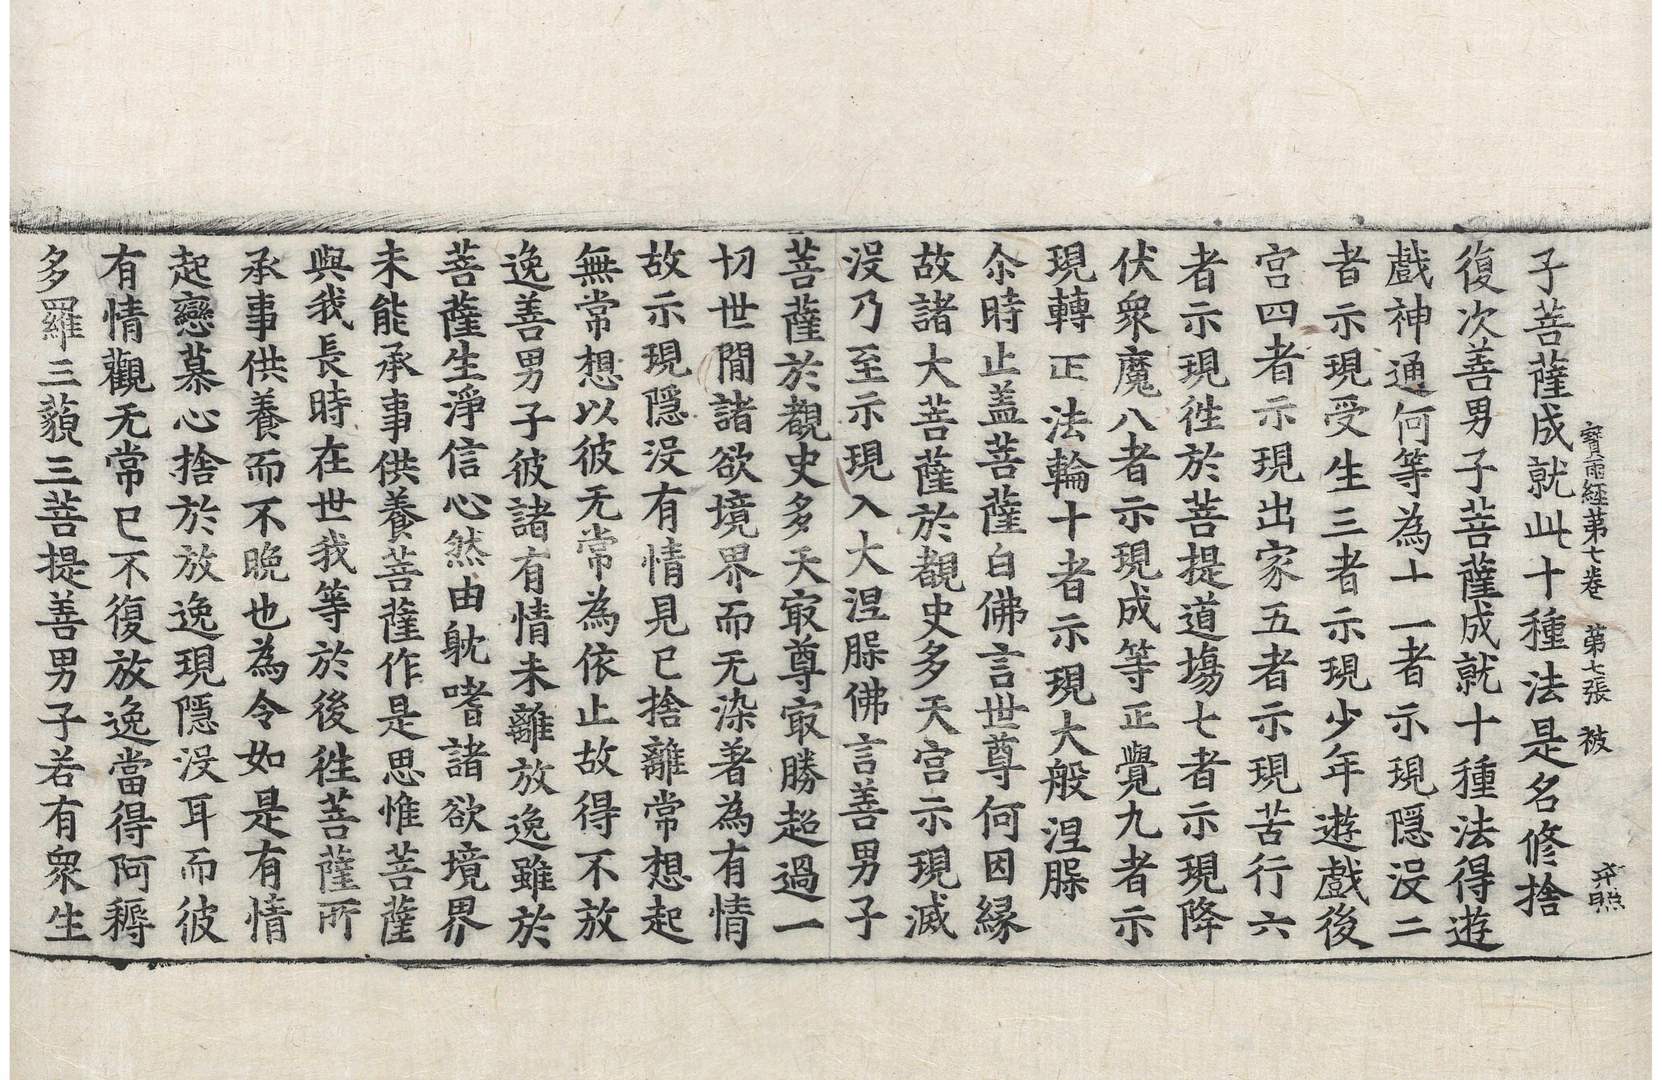 寳雨經第七卷　第七張　被
子菩薩成就此十種法是名修捨
復次善男子菩薩成就十種法得遊
戲神通何等為十一者示現隱没二
者示現受生三者示現少年遊戲後
宮四者示現出家五者示現苦行六
者示現徃於菩提道場七者示現降
伏衆魔八者示現成等正覺九者示
現轉正法輪十者示現大般涅槃
尒時止盖菩薩白佛言世尊何因縁
故諸大菩薩於覩史多天宮示現滅
没乃至示現入大涅槃佛言善男子
菩薩於覩史多天㝡尊㝡勝超過一
切世間諸欲境界而无染著為有情
故示現隱没有情見已捨離常想起
無常想以彼无常為依止故得不放
逸善男子彼諸有情未離放逸雖於
菩薩生淨信心然由躭嗜諸欲境界
未能承事供養菩薩作是思惟菩薩
與我長時在世我等於後徃菩薩所
承事供養而不晚也為令如是有情
起戀慕心捨於放逸現隱没耳而彼
有情觀无常已不復放逸當得阿耨
多羅三藐三菩提善男子若有衆生